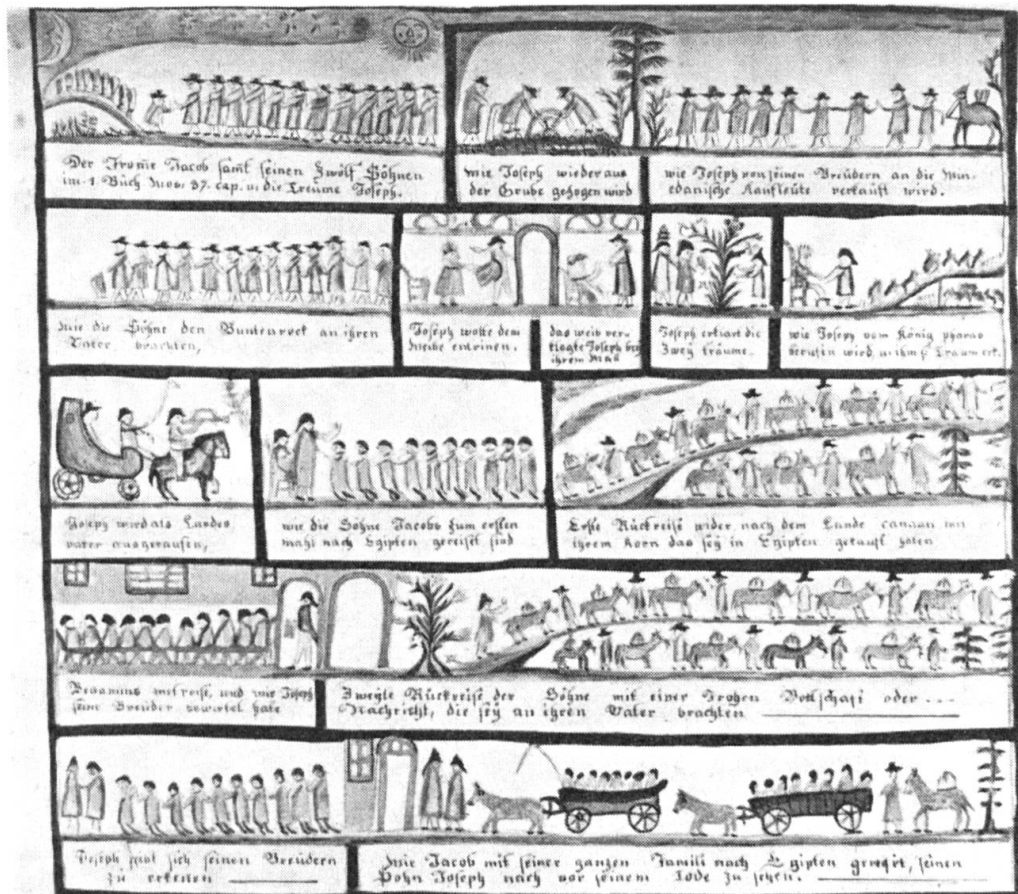 Der From̄e Jacob samt seinen Zwölf Söhnen
im 1. Buch Mos: 37. cap. u: die Treume Joseph.
wie Joseph wieder aus
der Grube gezogen wird
wie Joseph von seinen Breüdern an die Mi
dianische Kaufleüte verkauft wird.
wie die Söhne den Buntenrock an ihren
Vater brachten,
Joseph wolte dem
Weibe entrinen.
das weib ver
klagte Joseph bey
ihrem Mañ
Joseph erklärt die
Zwey träume.
wie Joseph vom König pharao
berufen wird, Traum
Joseph wird als Landes
vater ausgeraufen,
wie die Söhne Jacobs zum ersten
mahl nach Egipten gereisst sind
Erste Rückreise wider nach dem Lande canaan mit
ihrem Korn das sey in Egipten gekauft haben
Benamins mitreise, und wie Joseph
seine Breüder bewirtet hate
Zweyte Rückreise der Söhne mit einer Frohen Bottschaft oder ---
Nachricht, die sey an ihren Vater brachten
Joseph gibt sich seinen Breüdern
zu erkenen
Wie Jacob mit seiner ganzen Famili nach Egipten seinen
Sohn Joseph noch vor seinem Tode zu sehen.